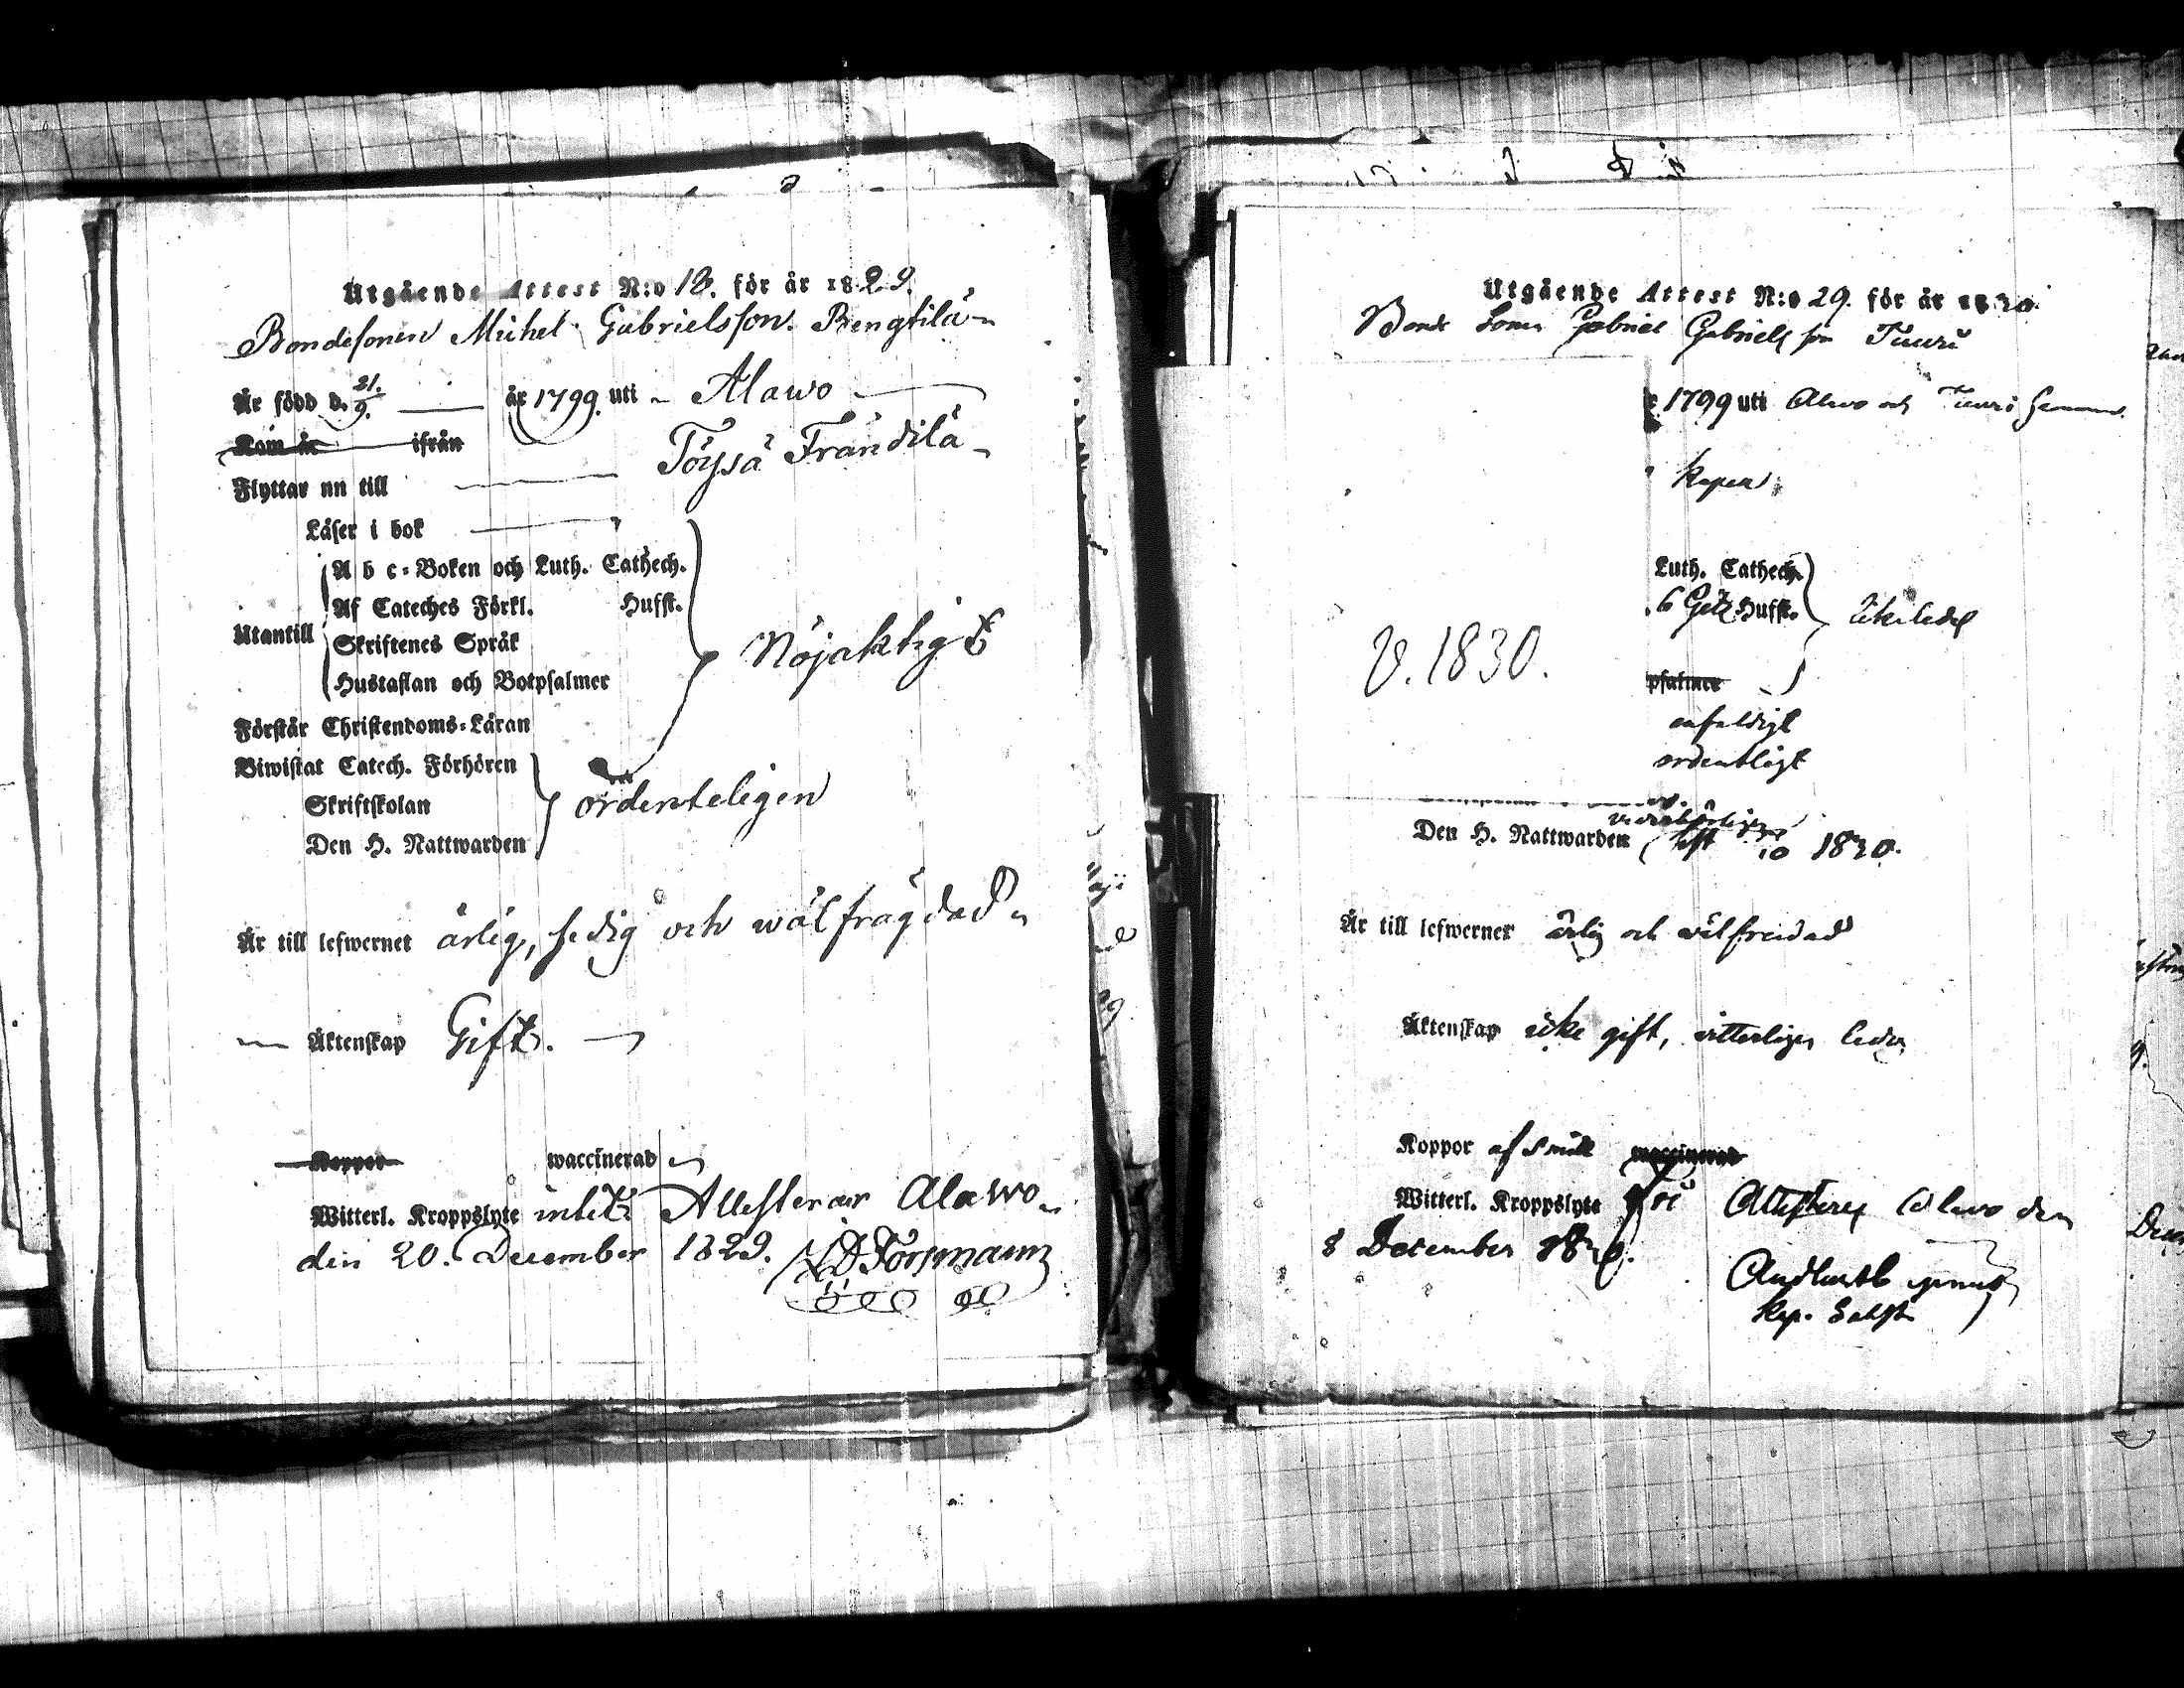 Utgående Attest N:o 18. för år 1829.
Bondesonen Michel Gabrielsson Bengtilä
Är född d. 21/9. år 1799. uti Alawo
Kom år ifrån
Flyttar nu till Töysä Frändilä
Läser i bok
A b c-Boken och Luth. Cathech.
Af Cateches Förkl. Hufst.
Utantill
Skriftenes Språk
Nöjaktigt
Hustaflan och Botpsalmer
Förstår Christendoms-Läran
Biwistat Catech. Förhören
Skriftskolan
ordenteligen
Den H. Nattwarden
Är till lefwernet ärlig, sedig och wälfrägdad
Äktenskap Gift.
Koppor waccinerad
Witterl. Kroppslyte intet Attesterar Alawo
den 20. December 1829. Forsmann
Utgående Attest N:o 29. för år 1830.
Bonde Sonen Gabriel Gabrielsson Tuuri
1799 uti Alavo och Tuuri
Luth. Cathech.
6 Hufst.
V. 1830.
psalmer
enfaldigt
ordentligt
Den H. Nattwarden 10 1830.
Är till lefwernet ärlig och välfreidad
Äktenskap icke gift, vitterligen ledig
Koppor waccinerad
Witterl. Kroppslyte fri Attesteras Alavo den
8 December 1830.
Kap.